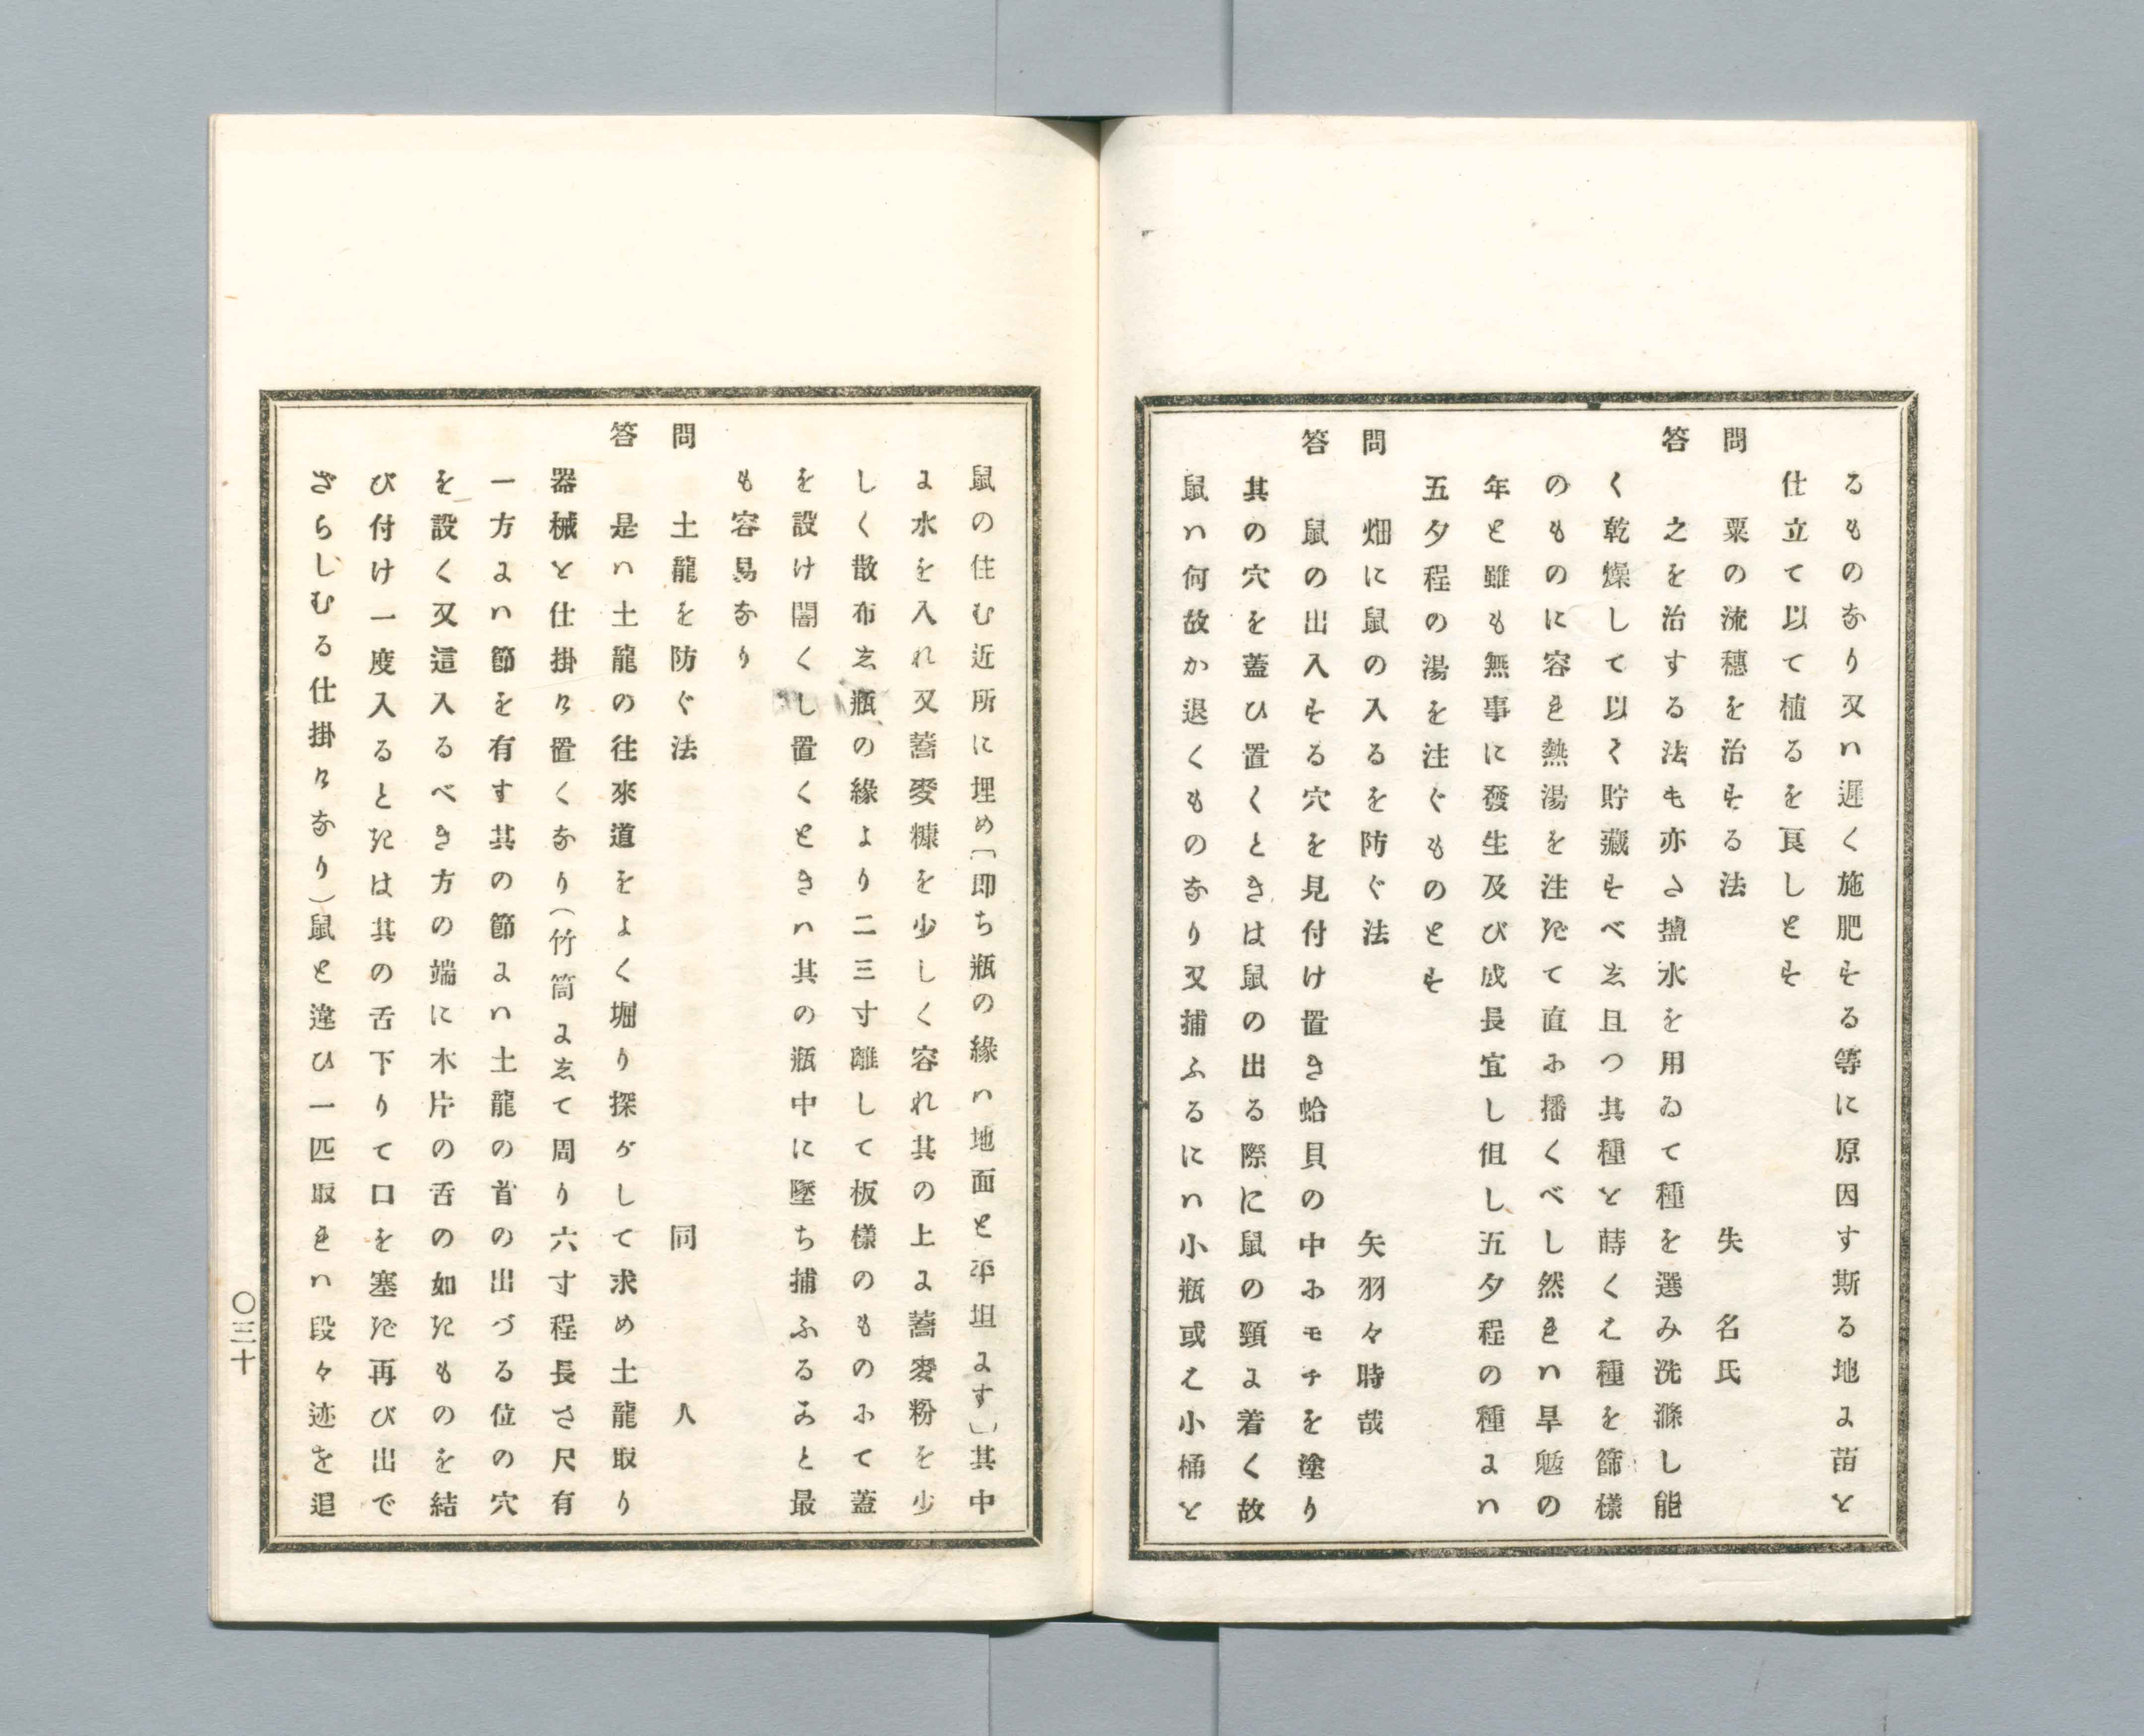 るものなり又ハ遅く施肥する等に原因す斯る地に苗を
仕立て以て植るを良しとす
問　粟の流穗を治する法　失名氏
答　之を治する法も亦た鹽水を用ゐて種を選み洗滌し能
く乾燥して以て貯藏すべし且つ其種を蒔くには種を篩樣
のものに容れ熱湯を注ぎて直に播くべし然れハ旱魃の
年と雖も無事に發生及び成長宜し但し五夕程の種にハ
五夕程の湯を注ぐものとす
問　畑に鼠の入るを防ぐ法　矢羽々時哉
答　鼠の出入する穴を見付け置き蛤貝の中にモチを塗り
其の穴を蓋ひ置くときは鼠の出る際に鼠の頸に着く故
鼠ハ何故か退くものなり又捕ふるにハ小瓶或は小桶を
鼠の住む近所に埋め〔即ち瓶の緣ハ地面と平坦にす〕其中
に水を入れ又蕎麥糠を少しく容れ其の上に蕎麥粉を少
しく散布し瓶の緣より二三寸離して板樣のものにて蓋
を設け闇くし置くときハ其の瓶中に墜ち捕ふること最
も容易なり
問　土龍を防ぐ法　同人
答　是ハ土龍の往來道をよく堀り探がして求め土龍取り
器械を仕掛け置くなり（竹筒にして周り六寸程長さ尺有
一方にハ節を有す其の節にハ土龍の首の出づる位の穴
を設く又這入るべき方の端に木片の舌の如きものを結
び付け一度入るときは其の舌下りて口を塞ぎ再び出で
ざらしむる仕掛けなり）鼠と違ひ一匹取れハ段々迹を追
〇三十